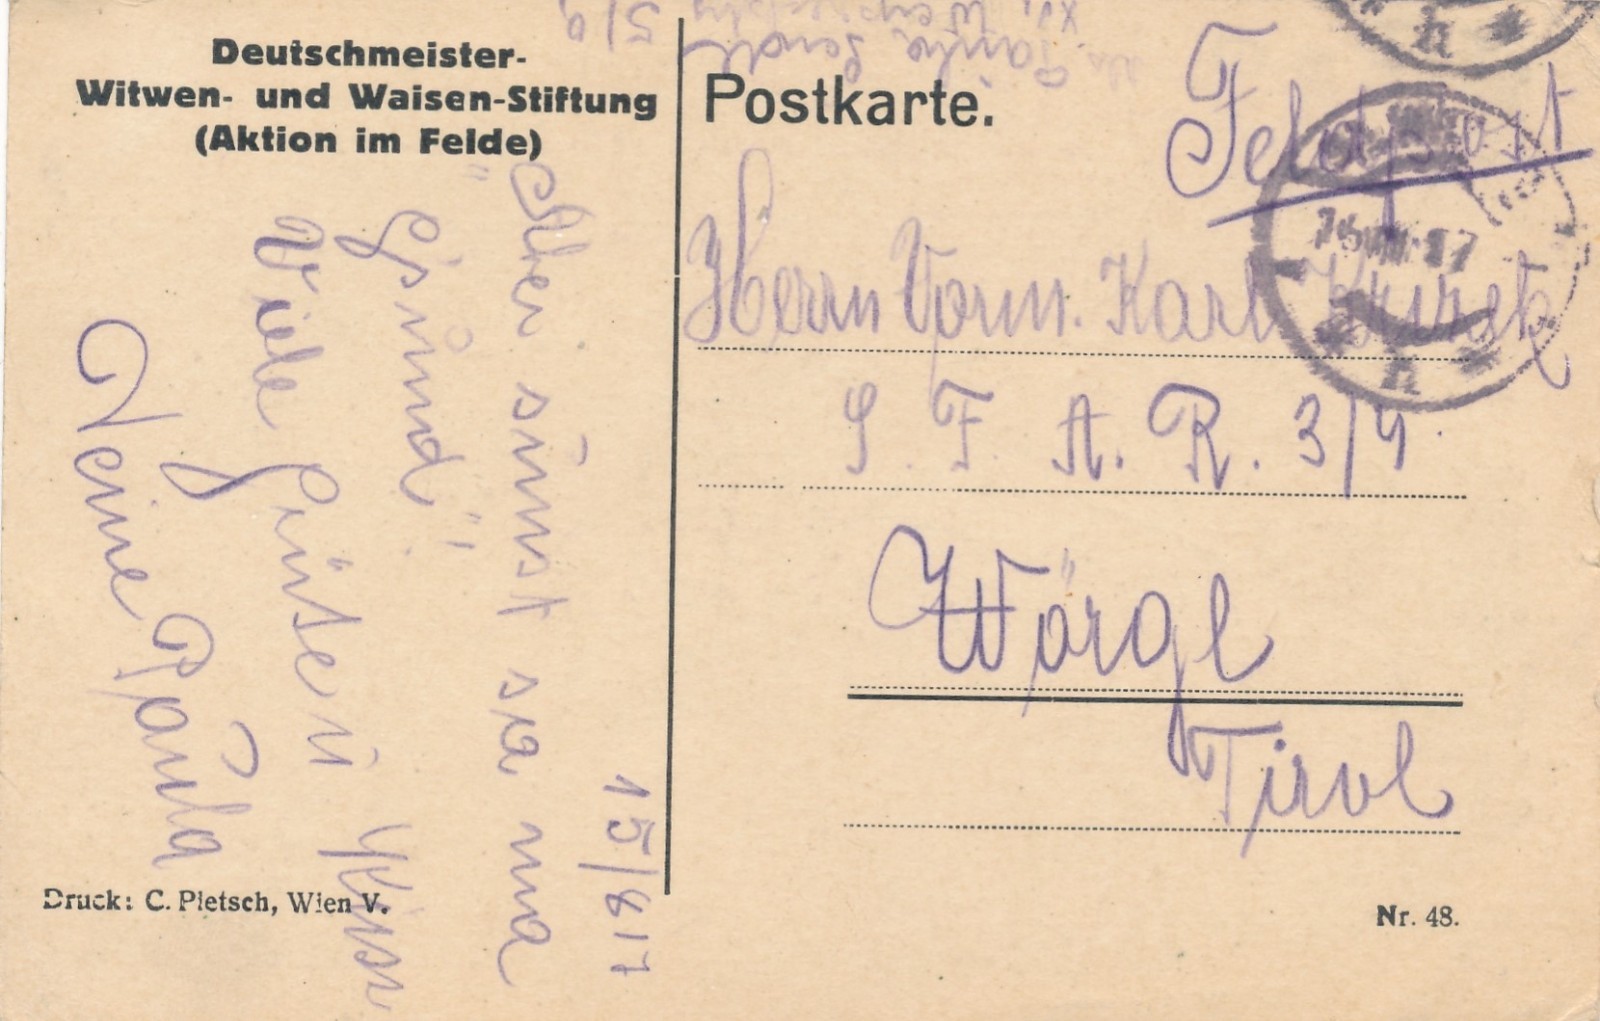 Deutschmeister-
Witwen- und Waisen-Stiftung
(Aktion im Felde)
Postkarte.
Feldpost
Herrn Vorm. Karl
S. F. A. R. 3/4.
Wörgl
Tirol
15/8 17
"Aber sünst sa ma
Gsund"
Viele Grüße u Küsse
Deine Paula
Druck: C. Pietsch, Wien V.
Nr. 48.